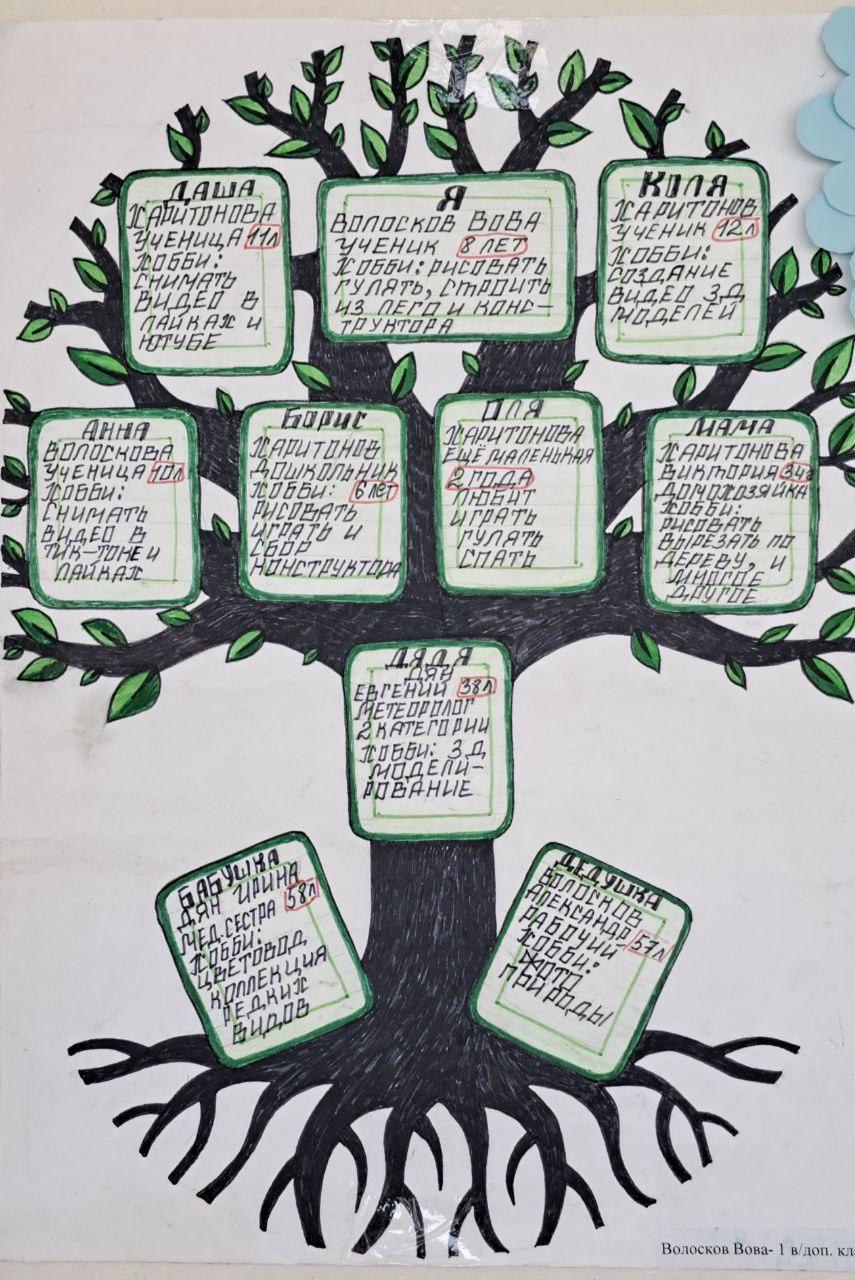 ДАША
ХАРИТОНОВА
УЧЕНИЦА 11Л
ХОББИ:
СНИМАТЬ
ВИДЕО В
ЛАЙКАХ И
ЮТУБЕ
Я
ВОЛОСКОВ ВОВА
УЧЕНИК 8 ЛЕТ
ХОББИ: РИСОВАТЬ
ГУЛЯТЬ, СТРОИТЬ
ИЗ ЛЕГО И КОНС-
ТРУКТОРА
КОЛЯ
ХАРИТОНОВ
УЧЕНИК 12Л
ХОББИ:
СОЗДАНИЕ
ВИДЕО 3Д
МОДЕЛЕЙ
АННА
ВОЛОСКОВА
УЧЕНИЦА 10Л
ХОББИ:
СНИМАТЬ
ВИДЕО В
ТИК-ТОКЕ И
ЛАЙКАХ
БОРИС
ХАРИТОНОВ
ДОШКОЛЬНИК
ХОББИ: 6 ЛЕТ
РИСОВАТЬ
ИГРАТЬ И
СБОР
КОНСТРУКТОРА
ОЛЯ
ХАРИТОНОВА
ЕЩЁ МАЛЕНЬКАЯ
2 ГОДА
ЛЮБИТ
ИГРАТЬ
ГУЛЯТЬ
СПАТЬ
МАМА
ХАРИТОНОВА
ВИКТОРИЯ 34г
ДОМОХОЗЯЙКА
ХОББИ:
РИСОВАТЬ
ВЫРЕЗАТЬ ПО
ДЕРЕВУ, И
МНОГОЕ
ДРУГОЕ
ДЯДЯ
ДЯК
ЕВГЕНИЙ 38Л
МЕТЕОРОЛОГ
2 КАТЕГОРИИ
ХОББИ: 3Д
МОДЕЛИ-
РОВАНИЕ
БАБУШКА
ДЯК ИРИНА
МЕД.СЕСТРА 58Л
ХОББИ:
ЦВЕТОВОД
КОЛЛЕКЦИЯ
РЕДКИХ
ВИДОВ
ДЕДУШКА
ВОЛОСКОВ
АЛЕКСАНДР
РАБОЧИЙ 57Л
ХОББИ:
ФОТО
ПРИРОДЫ
Волосков Вова- 1 в/доп. кла